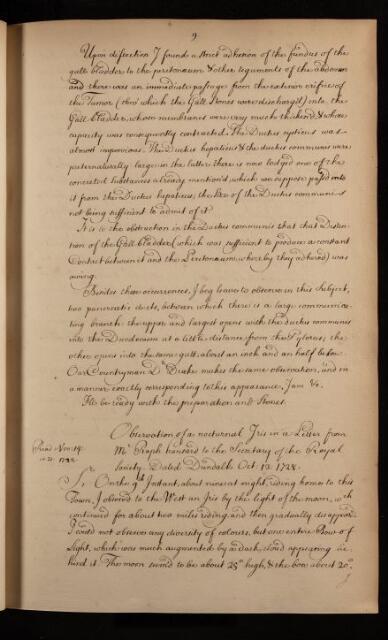 9
Upon dissection I found a strict adhesion of the fundus of the
gall bladder to the peritonaeum & other teguments of the abdomen
and there was an immediate passage from the extream orifice of
the Tumor (thro' which the Gall Stones were discharg'd) into the
Gall bladder, whose membranes were very much thicken'd & whose
capacity was consequently contracted. The Ductus cysticus was
almost impervious. The Ductus hepaticus & the ductus communis were
preternaturally large in the latter there is now lodg'd one of the
concreted substances already mention'd which we suppose pass'd into
it from the Ductus hepaticus, the of the Ductus communis
not being sufficient to admit of it
It is to the obstruction in the Ductus communis that that disten
tion of the Gall bladder (which was sufficient to produce a constant
Contact between it and the Peritonaeum whereby they adhered) was
owing.
Besides these occurrences, I beg leave to observe in this Subject,
two pancreatic ducts, between which there is a large communica-
ting branch the upper and largest opens with the ductus communis
into the Duodenum at a little distance from the Pylorus; the
other opens into the same gutt, about an inch and an half below.
Our Countryman Dr Drake makes the same observation, and in
a manner exactly corresponding to this appearance. I am &c.
I'll be ready with the preparation and Stones.
Observation of a nocturnal Iris in a Letter from
Mr to the Secretary of the Royal
Society. Dated Dundalk Oct 12 1728.
Read Nov 14
1728.
Sr On the 9th Instant, about nine at night, riding home to this
Town, I observed to the West an Iris by the light of the moon, wch
continued for about two miles riding, and then gradually disappear'd
I could not observe any diversity of colours, but one entire Bow of
Light, which was much augmented by a dark cloud appearing be
hind it. The moon seem'd to be about 25° high, & the bow about 20°.